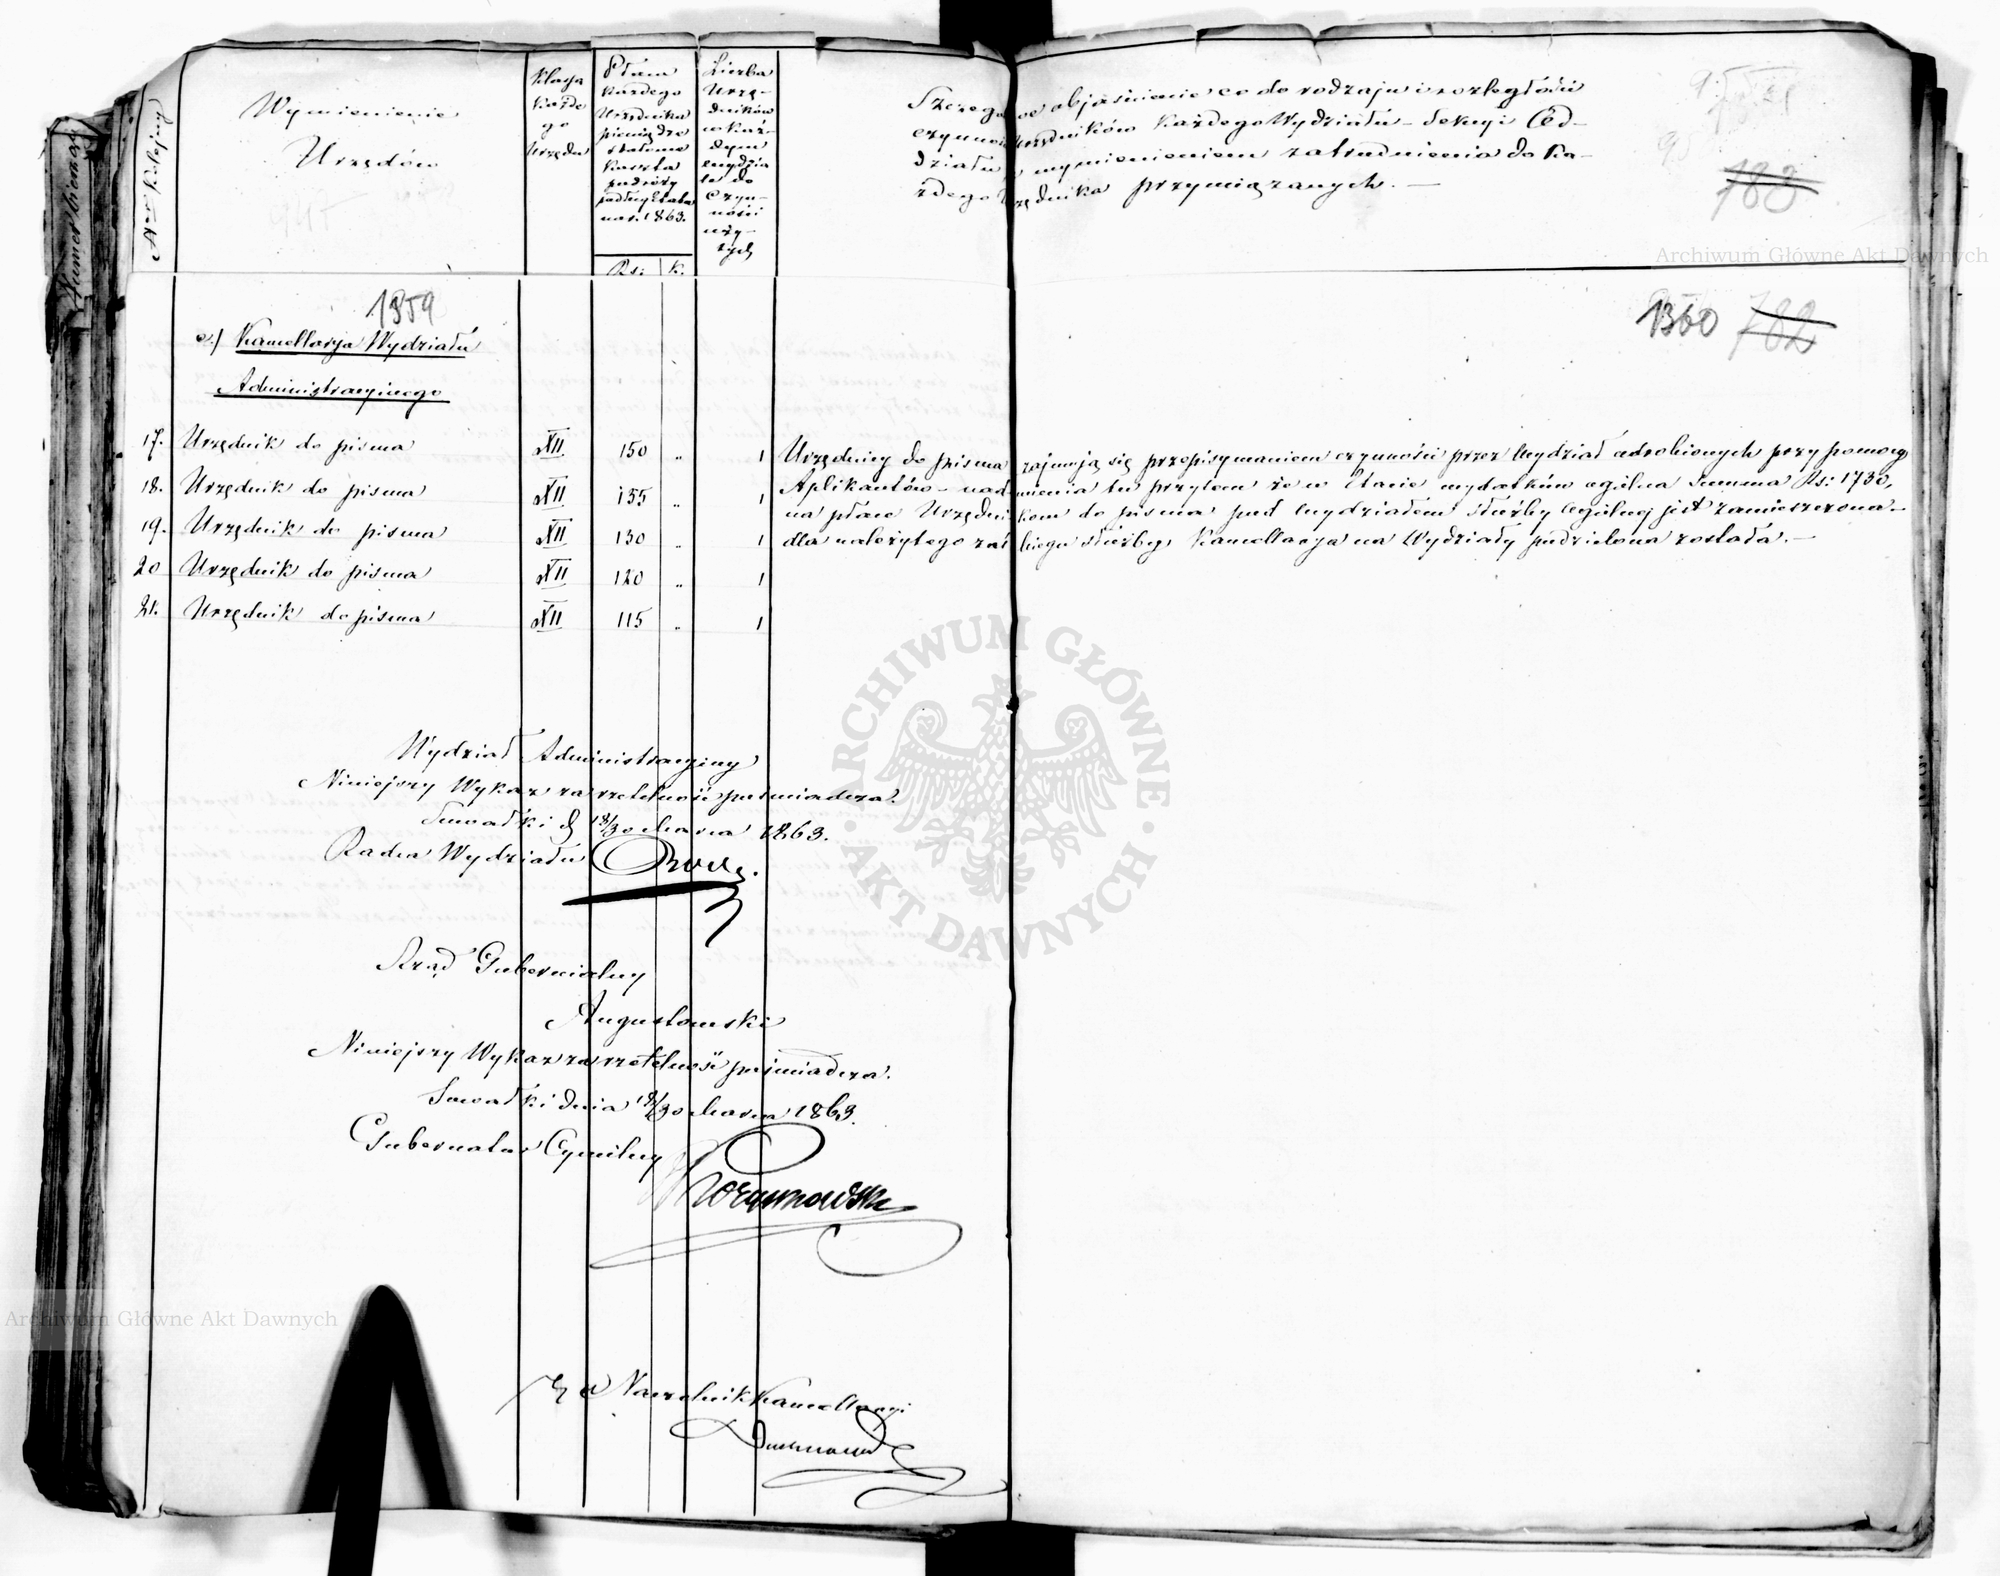 Numer bieżący
Nr Kolejny
Wymienienie
Urzędów
Klassa
każde
go
Urzędu
Płaca
każdego
Urzędnika
pieniądze
stołowe
koszta
podróży
podług Etatu
na r. 1863.
Rs: k.
Liczba
Urzę-
dników
w każ-
dym
wydzia
le do
Czyn-
ności
uży-
tych
Szczegółowe objaśnienie co do rodzaju i rozległości
czynności Urzędników każdego Wydziału - Sekcyi Od-
działu, z wymienieniem zatrudnienia do ka-
żdego Urzędnika przywiązanych. —
783
1359
1360 782
e./ Kancellarya Wydziału
Administracyjnego
17. Urzędnik do pisma XII 150 „ 1
18. Urzędnik do pisma XII 135 „ 1
19. Urzędnik do pisma XII 130 „ 1
20 Urzędnik do pisma XII 120 „ 1
21. Urzędnik do pisma XII 115 „ 1
Urzędnicy do pisma zajmują się przepisywaniem czynności przez Wydział odrobionych przy pomocy
Aplikantów - nadmienia tu przytem że w Etacie wydatków ogólna Summa Rs: 1730,
na płace Urzędnikom do pisma pod wydziałem służby Ogólnej jest zamieszczona -
dla należytego zaś biegu służby, Kancellarya na Wydziały podzielona została. —
Wydział Administracyjny
Niniejszy Wykaz za rzetelność poświadcza.
Suwałki d 18/30 Marca 1863.
Radca Wydziału
Rząd Gubernialny
Augustowski
Niniejszy Wykaz za rzetelność poświadcza.
Suwałki dnia 18/30 Marca 1863.
Gubernator Cywilny
Korytkowski
Za Naczelnik Kancellaryi
Archiwum Główne Akt Dawnych
Archiwum Główne Akt Dawnych
ARCHIWUM GŁÓWNE
AKT DAWNYCH